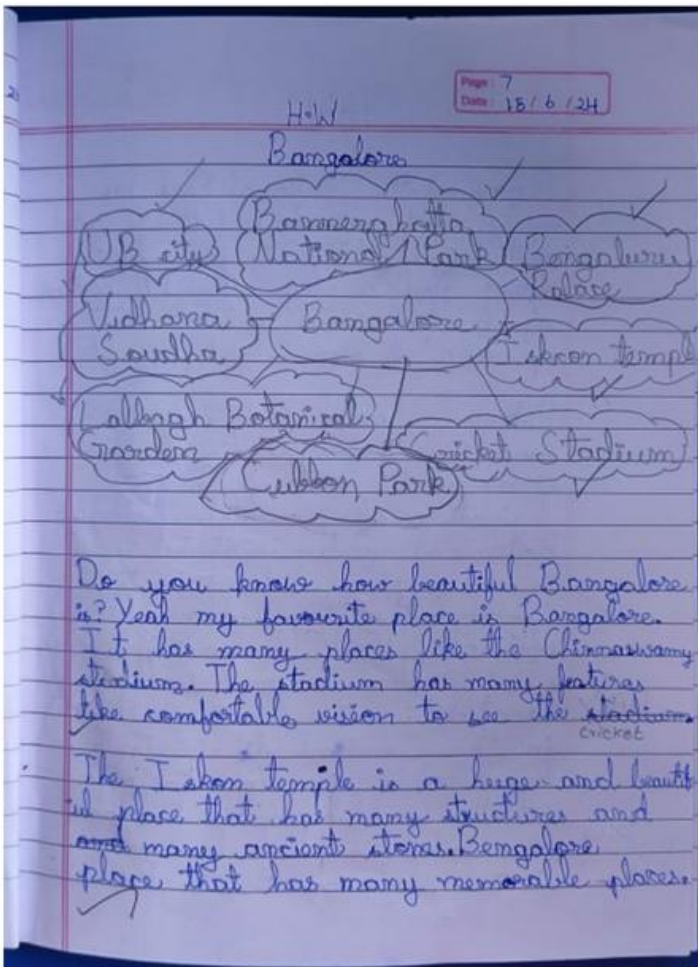 Page: 7
Date: 15/6/24
H.W
Bangalore
Bannerghatta
National Park
UB city
Bengaluru
Palace
Vidhana
Soudha
Bangalore
Iskcon templ
Lalbagh Botanical
Garden
Cricket Stadium
Cubbon Park
Do you know how beautiful Bangalore
is? Yeah my favourite place is Bangalore.
It has many places like the Chinnaswamy
stadium. The stadium has many features
like comfortable vision to see the stadium
cricket
The Iskon temple is a huge and beautif
ul place that has many structures and
and many ancient stones. Bengalore
place that has many memorable places.